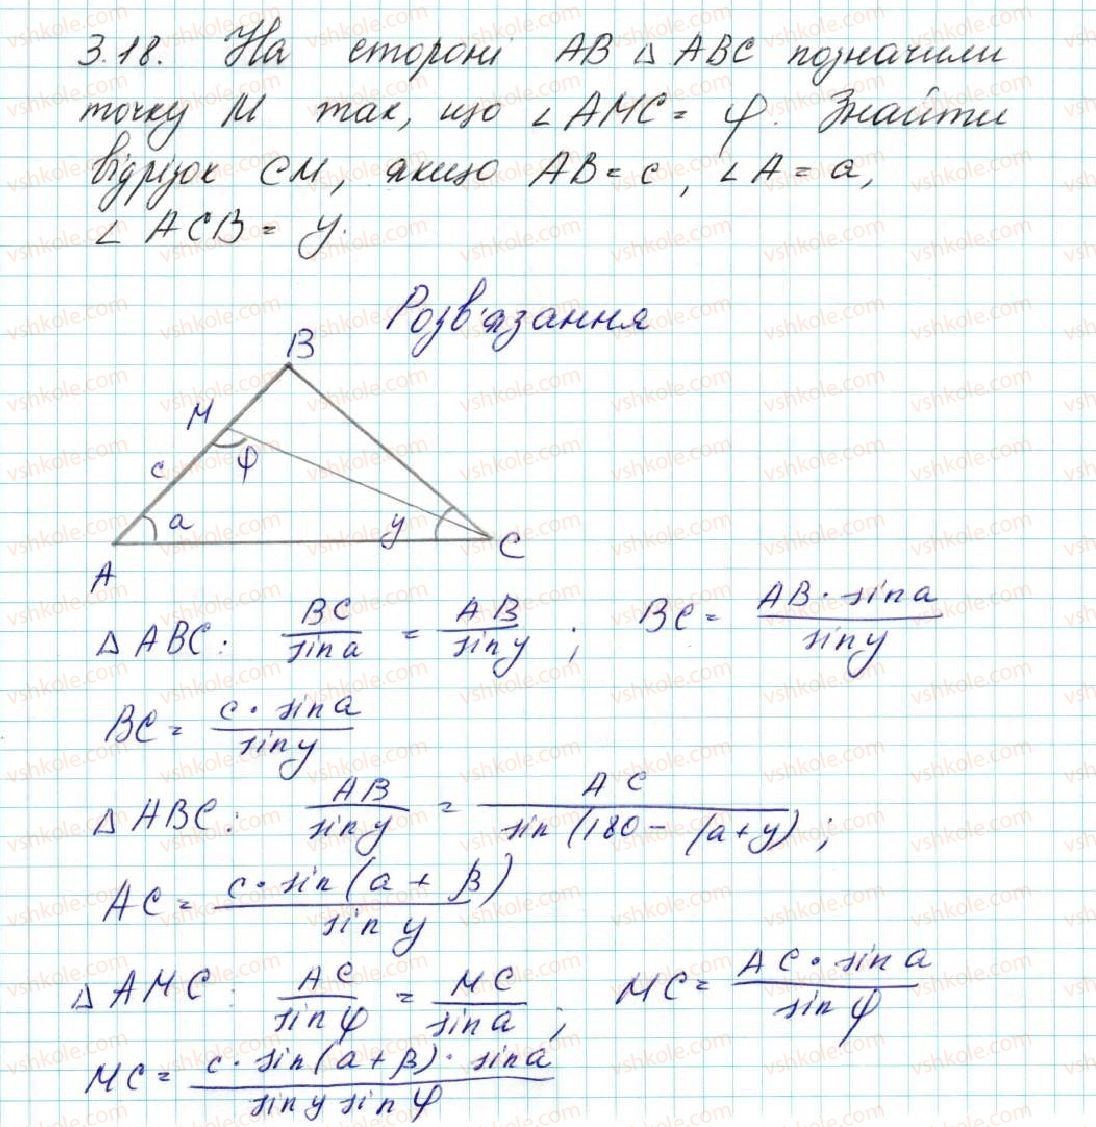 3.18. На стороні AB △ ABC позначили
точку M так, що ∠AMC = φ. Знайти
відрізок CM, якщо AB = c, ∠A = a,
∠ ACB = y.
Розв'язання
B
M
c
φ
a
y
C
A
△ ABC: BC/sin a = AB/sin y; BC = AB · sin a/sin y
BC = c · sin a/sin y
△ ABC: AB/sin y = AC/sin (180 - (a + y);
AC = c · sin (a + β)/sin y
△ AMC: AC/sin φ = MC/sin a; MC = AC · sin a/sin φ
MC = c · sin (a + β) · sin a/sin y sin φ